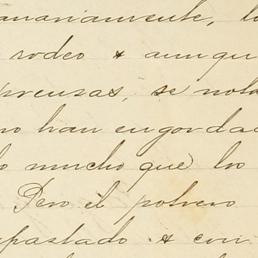 anariamente, lo
rodeo & aunqu
prensas, se nota
no han engordad
lo mucho que los
Pero el potrero
apastado & con